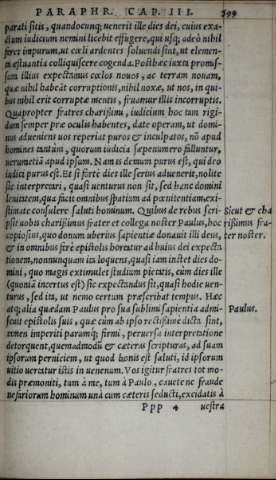 PARAPHR. CAP. III. 399
parati sitis, quandocunq; uenerit ille dies dei, cuius exa-
ctum iudicium nemini licebit effugere, qui usq; adeò nihil
feret impurum, ut cœli ardentes soluendi sint, ut elemen-
ta æstuantia colliquiscere cogenda. Post hæc iuxta promis-
sum illius expectamus cœlos nouos, ac terram nouam,
quæ nihil habeāt corruptionis, nihil noxæ, ut nos, in qui-
bus nihil erit corruptæ mentis, fruamur illis incorruptis.
Quapropter fratres charissimi, iudicium hoc tam rigi-
dum semper præ oculis habentes, date operam, ut domi-
nus adueniens uos reperiat puros & inculpatos, nō apud
homines tantùm, quorum iudicia sæpenumero falluntur,
uerumetiā apud ipsum. Nam is demum purus est, qui deo
iudici purus est. Et si fortè dies ille serius aduenerit, nolite
sic interpretari, quasi uenturus non sit, sed hanc domini
lenitatem, qua facit omnibus spatium ad pœnitentiam, exi-
stimate consulere saluti hominum. Quibus de rebus scri-
psit uobis charissimus frater et collega noster Paulus, hoc
copiosius, quo donum uberius sapientiæ donauit illi deus,
& in omnibus ferè epistolis hortatur ad huius dei expecta
tionem, nonnunquam ita loquens, quasi iam instet dies do-
mini, quo magis extimulet studium pietatis, cum dies ille
(quoniā incertus est) sic expectandus sit, quasi hodie uen-
turus, sed ita, ut nemo certum præscribat tempus. Hæc
atq; alia quædam Paulus pro sua sublimi sapientia admi-
scuit epistolis suis, quæ cùm ab ipso rectissimè dicta sint,
tamen imperiti parumq; firmi, peruersa interpretatione
detorquent, quemadmodū & cæteras scripturas, ad suam
ipsorum perniciem, ut quod bonis est saluti, id ipsorum
uitio uertatur istis in uenenum. Vos igitur fratres tot mo-
dis præmoniti, tum à me, tum à Paulo, cauete ne fraude
nefariorum hominum unà cum cæteris seducti, excidatis à
Ppp 4 uestra
Sicut & cha
rissimus fra-
ter noster.
Paulus.